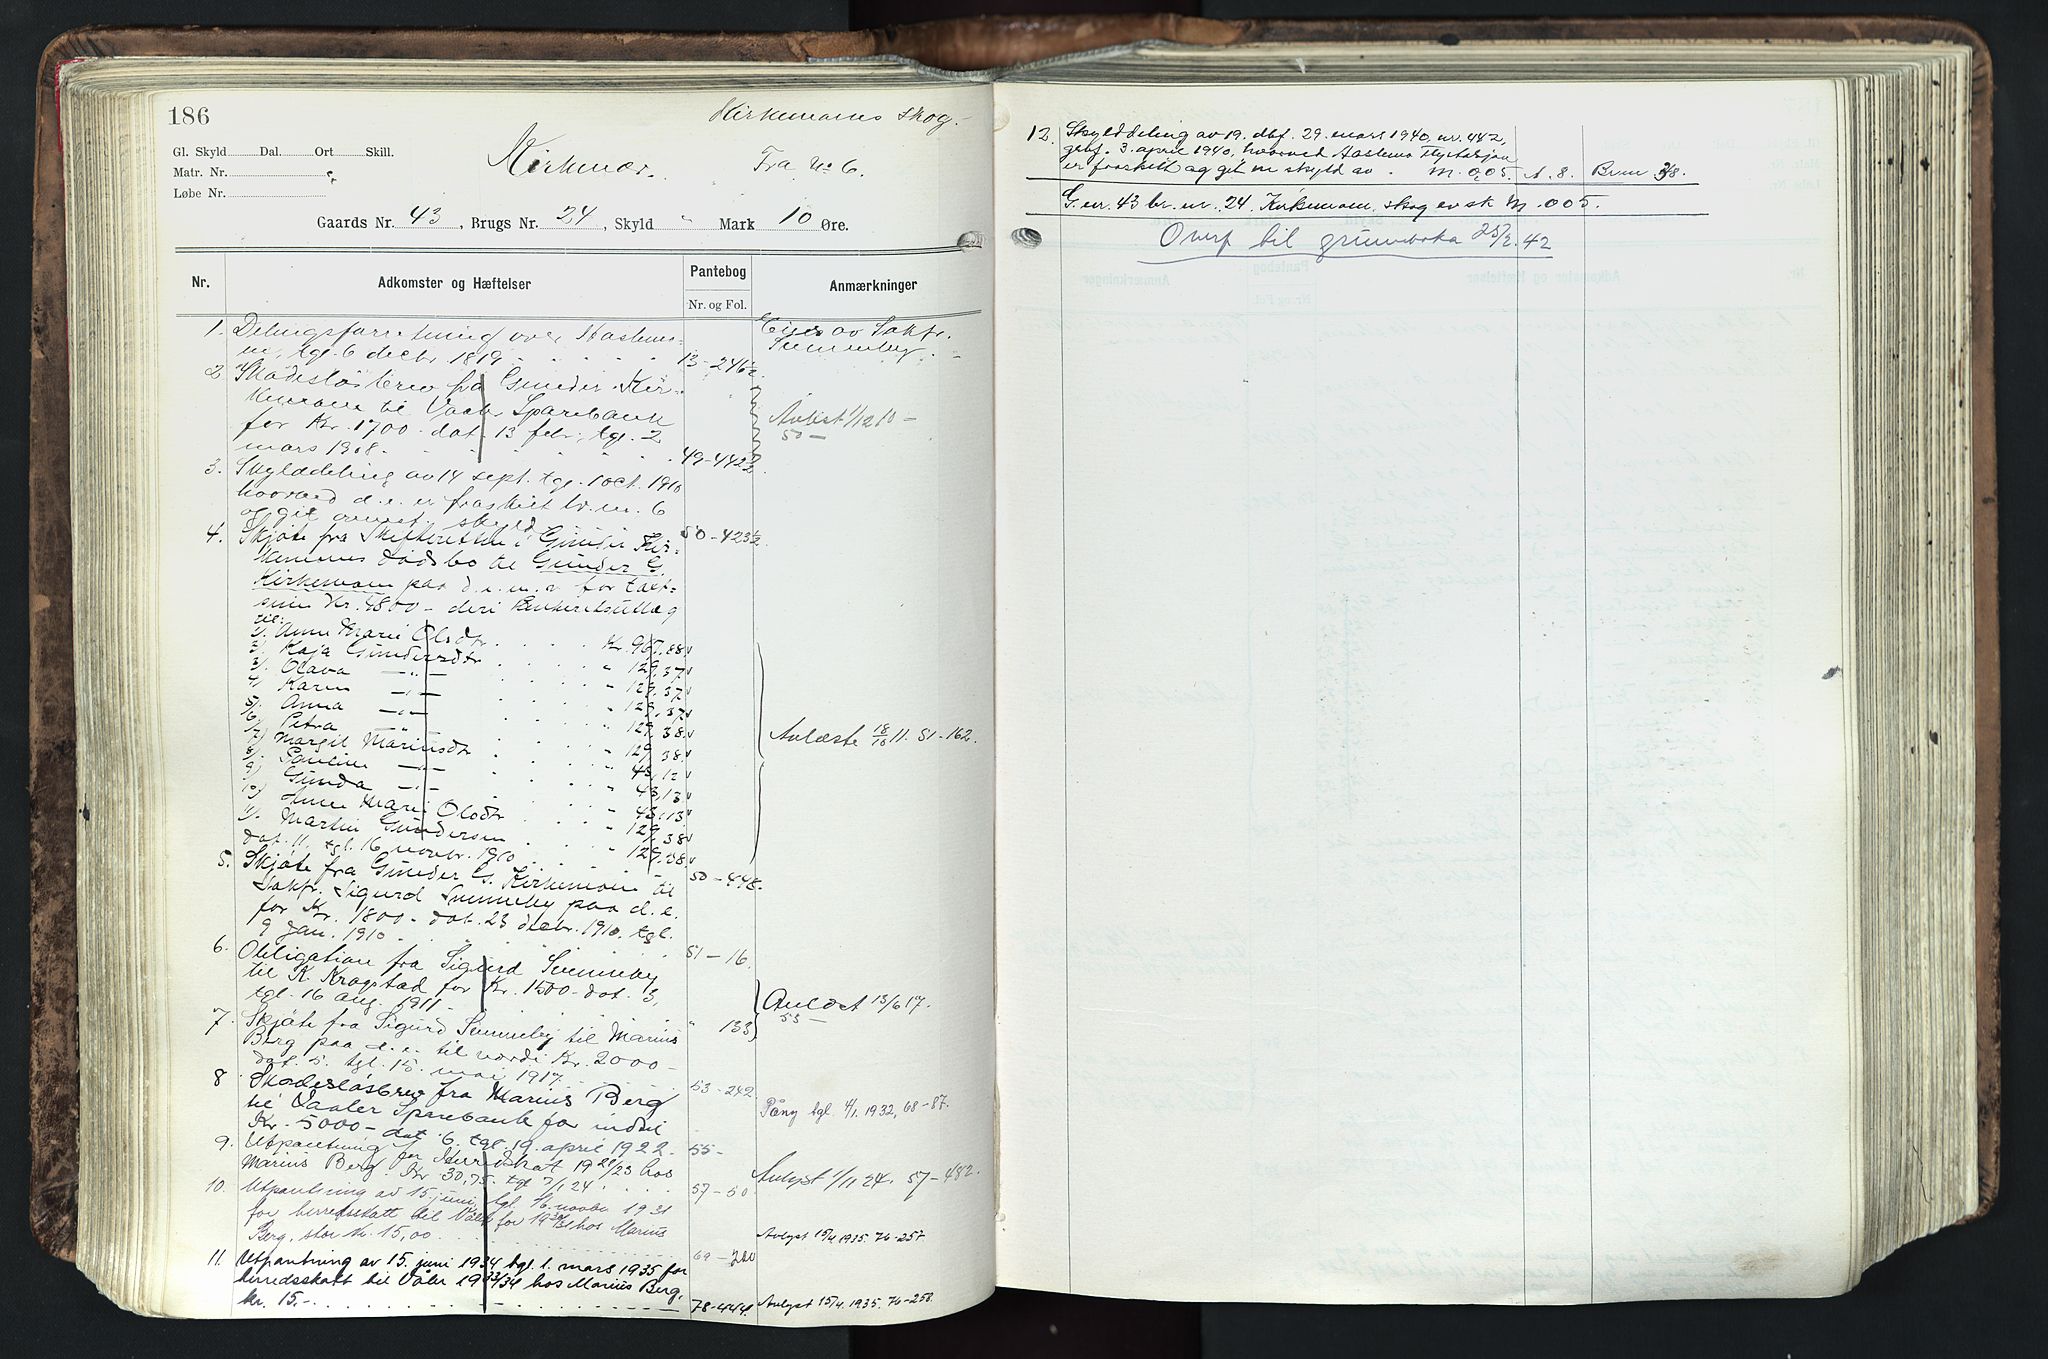 186
Kirkemoens skog.
Gl. Skyld Dal. Ort Skill.
Matr. Nr.
Løbe Nr.
Kirkemoe. Fra No 6.
Gaards Nr. 43, Brugs Nr. 24, Skyld " Mark 10 Øre.
Nr. Adkomster og Hæftelser Pantebog Nr. og Fol. Anmærkninger
1. Delingsforretning over Hasle
tgl. 6 decbr. 1819 13-246 1/2
Eies av Sakfr.
Sunneby.
2 Skadesløsbrev fra Gunder Kir-
kemoen til Vaaler Sparebank
for Kr. 1700 - dat. 13 febr., tgl. 2
mars 1908. 49-442 1/2
Avlæst 1/12 10 -
50 -
3. Skylddeling av 14 sept. tgl. 1 oct. 1910
hvorved d. e. er fraskilt br. nr. 6
og git anført skyld 50-423 1/2
4. Skjøte fra Skifteretten i Gunder Kir-
kemoens dødsbo til Gunder G.
Kirkemoen paa d. e. m. a for takst-
sum Kr. 1800 - deri panteretsutlæg
til:
1). Anne Marie Olsdtr. Kr. 967,88
2). Kaja Gundersdtr " 129,37
3). Olava —"— " 129,37
4) Karen —"— " 129,37
5). Anna —"— " 129,38
6). Petra " 129,38
7) Margit Mariusdtr " 43,12
8). Pauline —"— " 43,13
9) Gunda —"— " 43,13
10) Anne Marie Olsdtr " 129,38
11). Martin Gundersen " 129,38
dat. 11. tgl. 16 novbr. 1910 50-448.
Avlæste 18/10 11. 51-162.
5. Skjøte fra Gunder G. Kirkemoen til
Sakfr. Sigurd Sunneby paa d. e.
for Kr. 1800 - dat. 23 decbr. 1910, tgl.
9 jan. 1910. 51-16.
6. Obligation fra Sigurd Sunneby
til K. Krogstad for Kr. 1500 - dat. 3,
tgl. 16 aug. 1911 " 133
Avlæst 13/6 17.
53 -
7. Skjøte fra Sigurd Sunneby til Marius
Berg paa d. e. til værdi Kr. 2000 -
dat. 5. tgl. 15. mai 1917. 53-242
8 Skadesløsbrev fra Marius Berg
til Vaaler Sparebank for indtil
Kr. 5000 - dat. 6. tgl. 19. april 1922. 55-
Påny tgl. 4/1. 1932, 68-87.
9. Utpantning for Herredskat 1922/23 hos
Marius Berg. Kr 30,75 tgl 3/1 24 57-50
Avlyst 1/11 24. 57-482.
10. Utpantning av 15. juni, tgl. 16. novbr 1931
for herredsskatt til Våler for 1930/31 hos Marius
Berg, stor kr. 15,00. 69-200
Avlyst 15/4 1935. 76-257
11. Utpantning av 15. juni 1934 tgl. 1. mars 1935 for
herredsskatt til Våler 1933/34 hos Marius Berg,
kr. 15.- 78-444.
Avlyst 15/4. 1935. 76-258.
12. Skylddeling av 19. dbf. 29. mars 1940, nr. 442,
gebf. 3. april 1940, hvorved Haslemo Flystasjon
er fraskilt og git en skyld av . M. 0,05. A. 8. Brnr 38.
G. nr. 43 br. nr. 24 Kirkemoen skog er sk M. 0 05.
Overf til grunnboka 25/2. 42